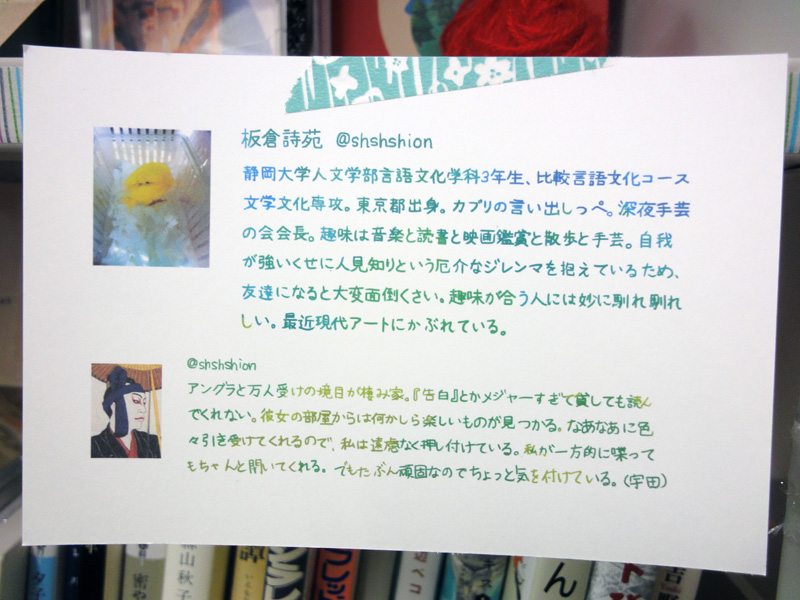 板倉詩苑 @shshshion
静岡大学人文学部言語文化学科3年生、比較言語文化コース
文学文化専攻。東京都出身。カブリの言い出しっぺ。深夜手芸
の会会長。趣味は音楽と読書と映画鑑賞と散歩と手芸。自我
が強いくせに人見知りという厄介なジレンマを抱えているため、
友達になると大変面倒くさい。趣味が合う人には妙に馴れ馴れ
しい。最近現代アートにかぶれている。
@shshshion
アングラと万人受けの境目が棲み家。『告白』とかメジャーすぎて貸しても読ん
でくれない。彼女の部屋からは何かしら楽しいものが見つかる。なあなあに色
々引き受けてくれるので、私は遠慮なく押し付けている。私が一方的に喋って
もちゃんと聞いてくれる。でもたぶん頑固なのでちょっと気を付けている。(宇田)
夕子
密や
森山秋子
譚
辺ペコ
ん